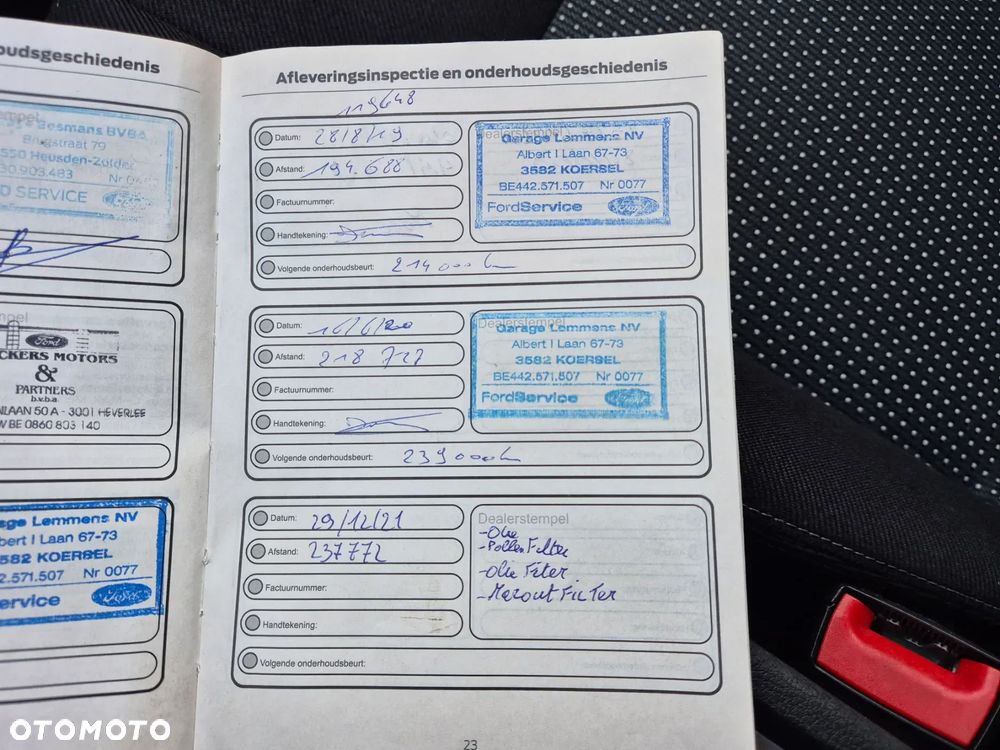 oudsgeschiedenis
Bosmans BVBA
Brugstraat 79
550 Heusden-Zolder
30.903.483
D SERVICE
Ford
CKERS MOTORS
&
PARTNERS
b.v.b.a.
NLAAN 50 A - 3001 HEVERLEE
W BE 0860 803 140
age Lemmens NV
bert I Laan 67-73
582 KOERSEL
2.571.507 Nr 0077
ervice
Ford
Afleveringsinspectie en onderhoudsgeschiedenis
119648
Datum: 28/8/19
Afstand: 194.688
Factuurnummer:
Handtekening:
Volgende onderhoudsbeurt: 214000 km
Dealerstempel
Garage Lemmens NV
Albert I Laan 67-73
3582 KOERSEL
BE442.571.507 Nr 0077
FordService
Ford
Datum: 16/6/20
Afstand: 218 727
Factuurnummer:
Handtekening:
Volgende onderhoudsbeurt: 239000 km
Dealerstempel
Garage Lemmens NV
Albert I Laan 67-73
3582 KOERSEL
BE442.571.507 Nr 0077
FordService
Ford
Datum: 29/12/21
Afstand: 237772
Factuurnummer:
Handtekening:
Volgende onderhoudsbeurt:
Dealerstempel
-Olie
-Pollen Filter
-Olie Filter
-Mazout Filter
23
OTOMOTO